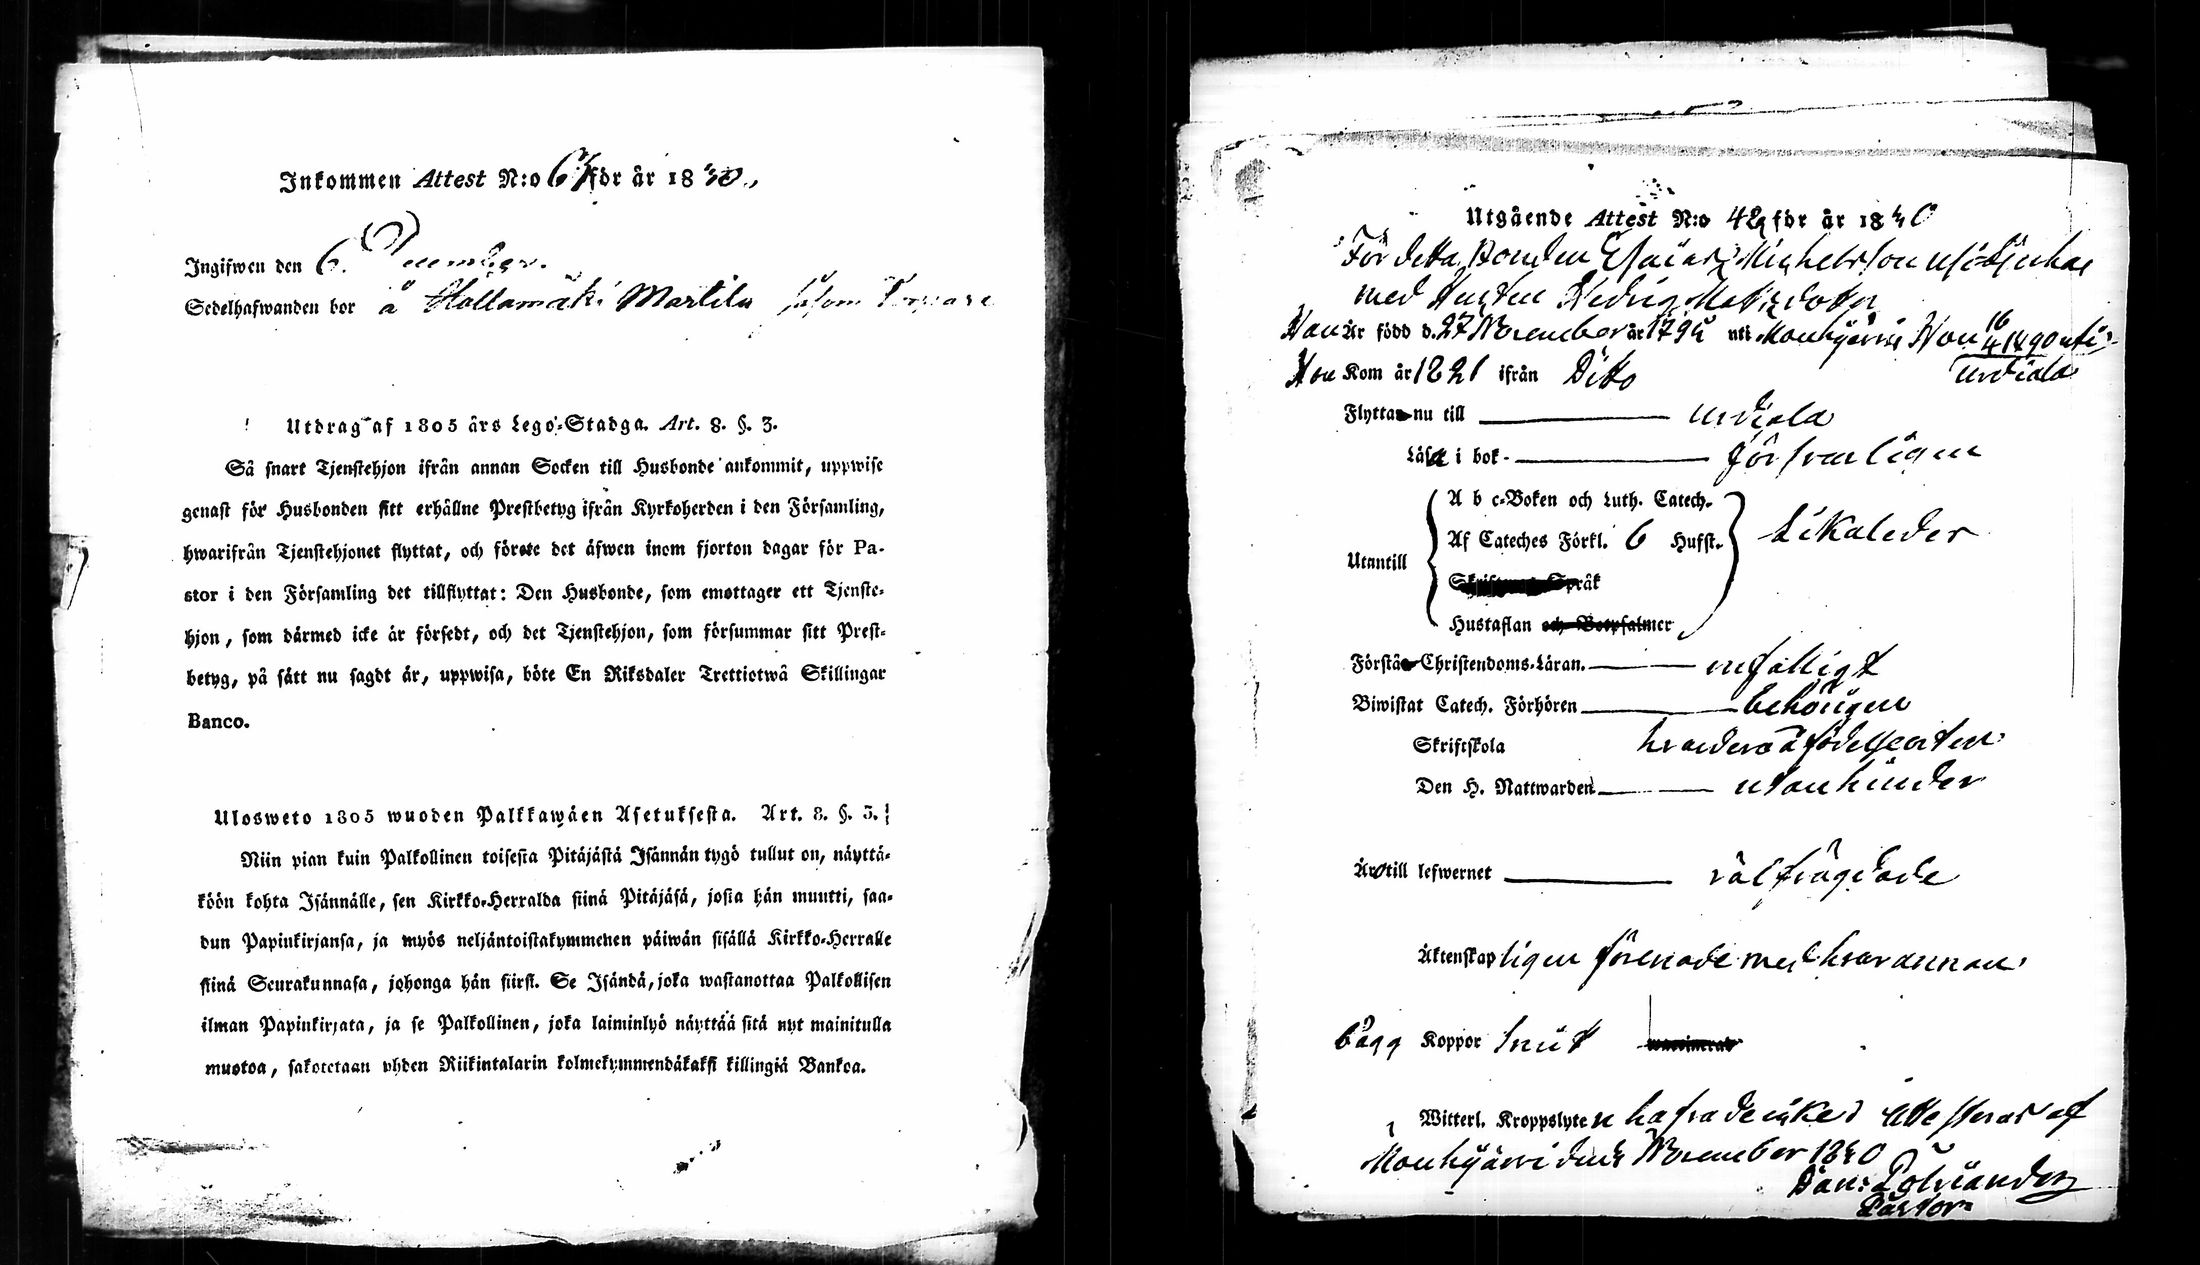 Inkommen Attest N:o för år 18
Ingifwen den 6. December.
Sedelhafwanden bor å Hollamäki Martila såsom Torpare
Utdrag af 1805 års Lego-Stadga. Art. 8. §. 3.
Så snart Tjenstehjon ifrån annan Socken till Husbonde ankommit, uppwise
genast för Husbonden sitt erhållne Prestbetyg ifrån Kyrkoherden i den Församling,
hwarifrån Tjenstehjonet flyttat, och förete det äfwen inom fjorton dagar för Pa-
stor i den Församling det tillflyttat: Den Husbonde, som emottager ett Tjenste-
hjon, som därmed icke är försedt, och det Tjenstehjon, som försummar sitt Prest-
betyg, på sätt nu sagdt är, uppwisa, böte En Riksdaler Trettiotwå Skillingar
Banco.
Ulosweto 1805 wuoden Palkkawäen Asetuksesta. Art. 8. §. 3.
Niin pian kuin Palkollinen toisesta Pitäjästä Isännän tygö tullut on, näyttä-
köön kohta Isännälle, sen Kirkko-Herralda siinä Pitäjäsä, josta hän muutti, saa-
dun Papinkirjansa, ja myös neljäntoistakymmenen päiwän sisällä Kirkko-Herralle
siinä Seurakunnasa, johonga hän siirst. Se Isändä, joka wastanottaa Palkollisen
ilman Papinkirjata, ja se Palkollinen, joka laiminlyö näyttää sitä nyt mainitulla
muotoa, sakotetaan yhden Riikintalarin kolmekymmendäkaksi killingiä Bankoa.
Utgående Attest N:o 42 för år 1840
För detta Bonden Esaias Michelsson
med Hustru Hedvig Mattsdotter
Han Är född d. 27 November år 1795 uti Mouhijärvi Hon 16/4 1790 uti
Urdiala
Hon Kom år 1821 ifrån Ditto
Flytta nu till Urdiala
Läsa i bok försvarligen
A b c-Boken och Luth. Catech.
Af Cateches Förkl. 6 Hufst. Likaledes
Utantill
Språk
Hustaflan och Botpsalmer
Förstå Christendoms-Läran. enfalligt
Biwistat Catech. Förhören behörigen
Skriftskola hvardera å födelseorten
Den H. Nattwarden utan hinder
Äro till lefwernet välfrägdade
Äktenskapligen förenade med hvarannan
bägg Koppor
Witterl. Kroppslyten hafva de icke; Attesteras af
Mouhijärvi den November 1840
Dan: Polviander
Pastor